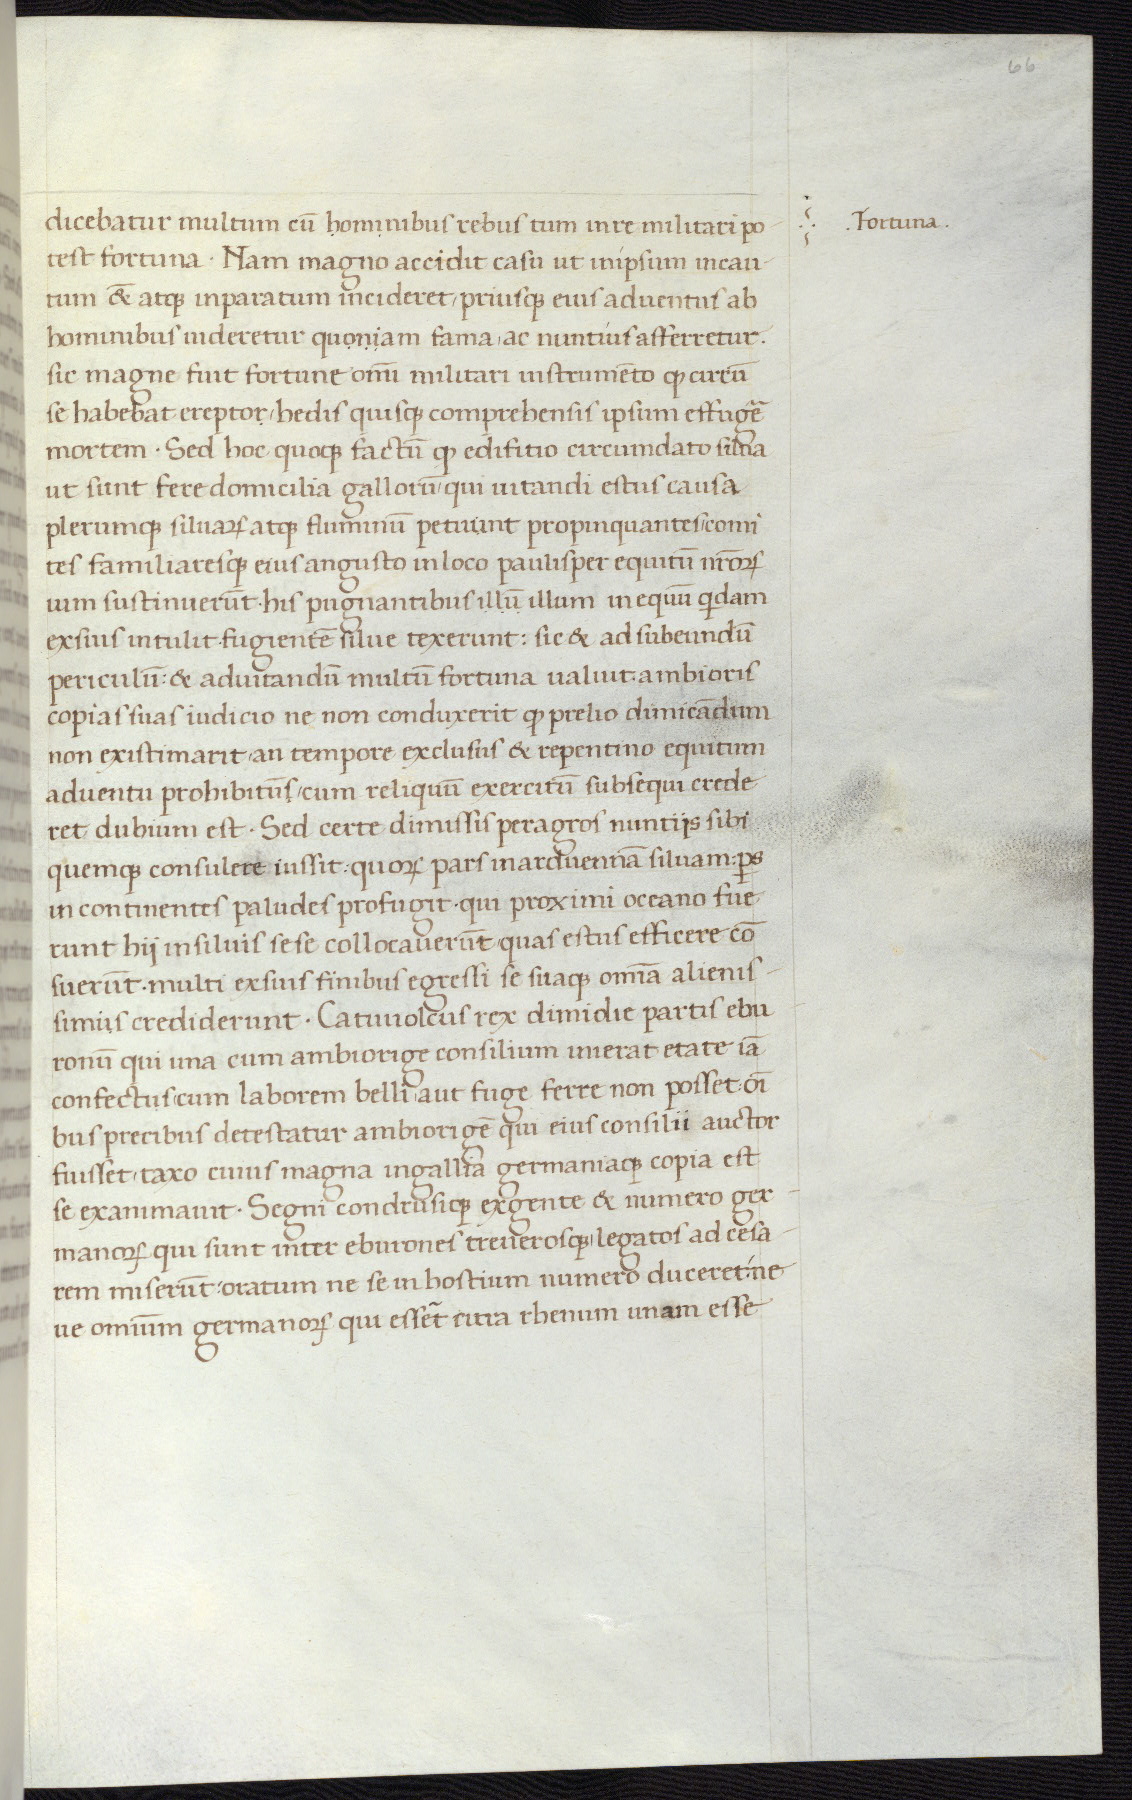 66
dicebatur multum cū hominibus rebus tum in re militari po-
test fortuna · Nam magno accidit casu ut in ipsum incau
tum & atqꝫ inparatum incideret, priusqꝫ eius aduentus ab
hominibus uideretur quoniam fama, ac nuntius afferretur.
sic magne fuit fortune omī militari instrumēto qꝫ circū
se habebat ereptor, hedis quisqꝫ comprehensis ipsum effugē
mortem · Sed hoc quoqꝫ factū qꝫ edifitio circumdato silua
ut sunt fere domicilia gallorū, qui uitandi estus causa
plerumqꝫ siluarꝝ atqꝫ fluminū petiunt propinquantes, comi
tes familiaresqꝫ eius angusto in loco paulisper equitū nr̄orꝝ
uim sustinuerūt · his pugnantibus illū illum in equū qͥdam
ex suis intulit · fugientē silue texerunt : sic & ad subeundū
periculū : & ad uitandū multū fortuna ualuit · ambioris
copias suas iudicio ne non conduxerit qꝫ prelio dimicādum
non existimarit, an tempore exclusus & repentino equitum
aduentu prohibitus, cum reliquū exercitū subsequi crede
ret, dubium est · Sed certe dimissis per agros nuntijs sibi
quemqꝫ consulere iussit : quorꝝ pars in arduennā siluam : ꝑs
in continentes paludes profugit · qui proximi oceano fue
runt hij in siluis sese collocauerūt, quas estus efficere cō
suerūt · multi ex suis finibus egressi se suaqꝫ omīa alienis-
simis crediderunt · Catuuolcus rex dimidie partis ebu
ronū qui una cum ambiorige consilium inierat etate iā
confectus, cum laborem belli, aut fuge ferre non posset · oī
bus precibus detestatur ambiorigē qui eius consilii auctor
fuisset, taxo cuius magna in gallia germaniaqꝫ copia est
se exanimauit · Segni condrusiqꝫ ex gente & numero ger-
manorꝝ qui sunt inter eburones treuerosqꝫ, legatos ad cesa-
rem miserūt : oratum ne se in hostium numero duceret : ne
ue omium germanorꝝ qui essēt citra rhenum unam esse
.Fortuna.